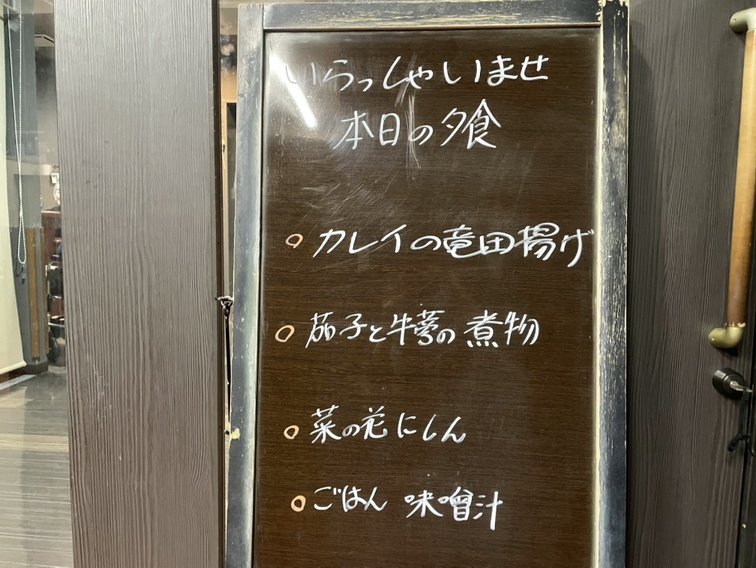 いらっしゃいませ
本日の夕食
○ カレイの竜田揚げ
○ 茄子と牛蒡の煮物
○ 菜の花にしん
○ ごはん 味噌汁